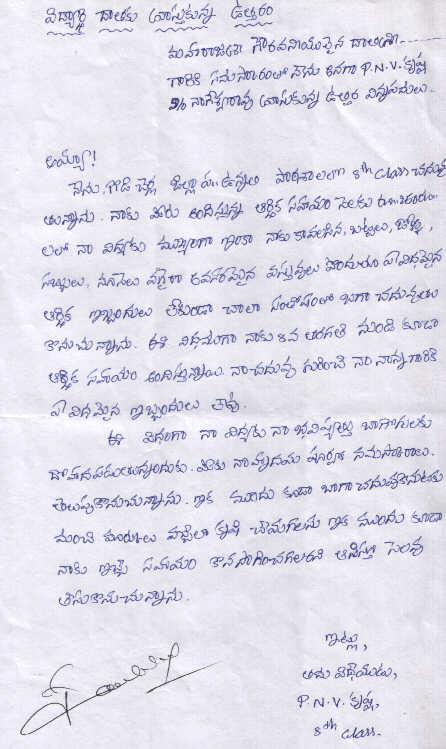 విద్యార్థి దాతకు వ్రాస్తుకున్న ఉత్తరం
మహారాజశ్రీ గౌరవనీయులైన దాతశ్రీ
గారికి నమస్కారంలో నేను అనగా P.N.V. కృష్ణ
S/o నాగేశ్వరరావు వ్రాసుకున్న ఉత్తర విన్నపములు.
అయ్యా!
నేను, గొడిచెర్ల జిల్లా ఉన్నత పాఠశాలలో 8th class చదువు
తున్నాను. నాకు మీరు అందిస్తున్న ఆర్థిక సహాయం నెలకు రూ.
లలో నా విద్యకు ముఖ్యంగా ఇంకా నాకు కావలసిన, బట్టలు,
సబ్బులు, నూనెలు వగైరా అవసరమైన వస్తువులు పొందుతూ ఏ విధమైన
ఆర్థిక ఇబ్బందులు లేకుండా చాలా సంతోషంలో బాగా చదువుతు
కొనుచున్నాను. ఈ విధముగా నాకు 8వ తరగతి నుండి కూడా
ఆర్థిక సహాయం అందిస్తున్నాయి. నా చదువు గురించి నా నాన్నగారికి
ఏ విధమైన ఇబ్బందులు లేవు.
ఈ విధంగా నా విద్యకు నా భవిష్యత్తు బాగోగులకు
దోహదపడుతున్నందుకు. మీకు నా హృదయ పూర్వక నమస్కారాలు.
తెలుపుకొనుచున్నాను. ఇక ముందు కూడా బాగా చదువుకొనుటకు
మంచి మార్కులు వచ్చేలా కృషి చేయగలను ఇక ముందు కూడా
నాకు ఇట్టి సహాయం కొనసాగించగలరని ఆశిస్తూ సెలవు
తీసుకొనుచున్నాను.
ఇట్లు,
తమ విధేయుడు,
P.N.V. కృష్ణ,
8th class.